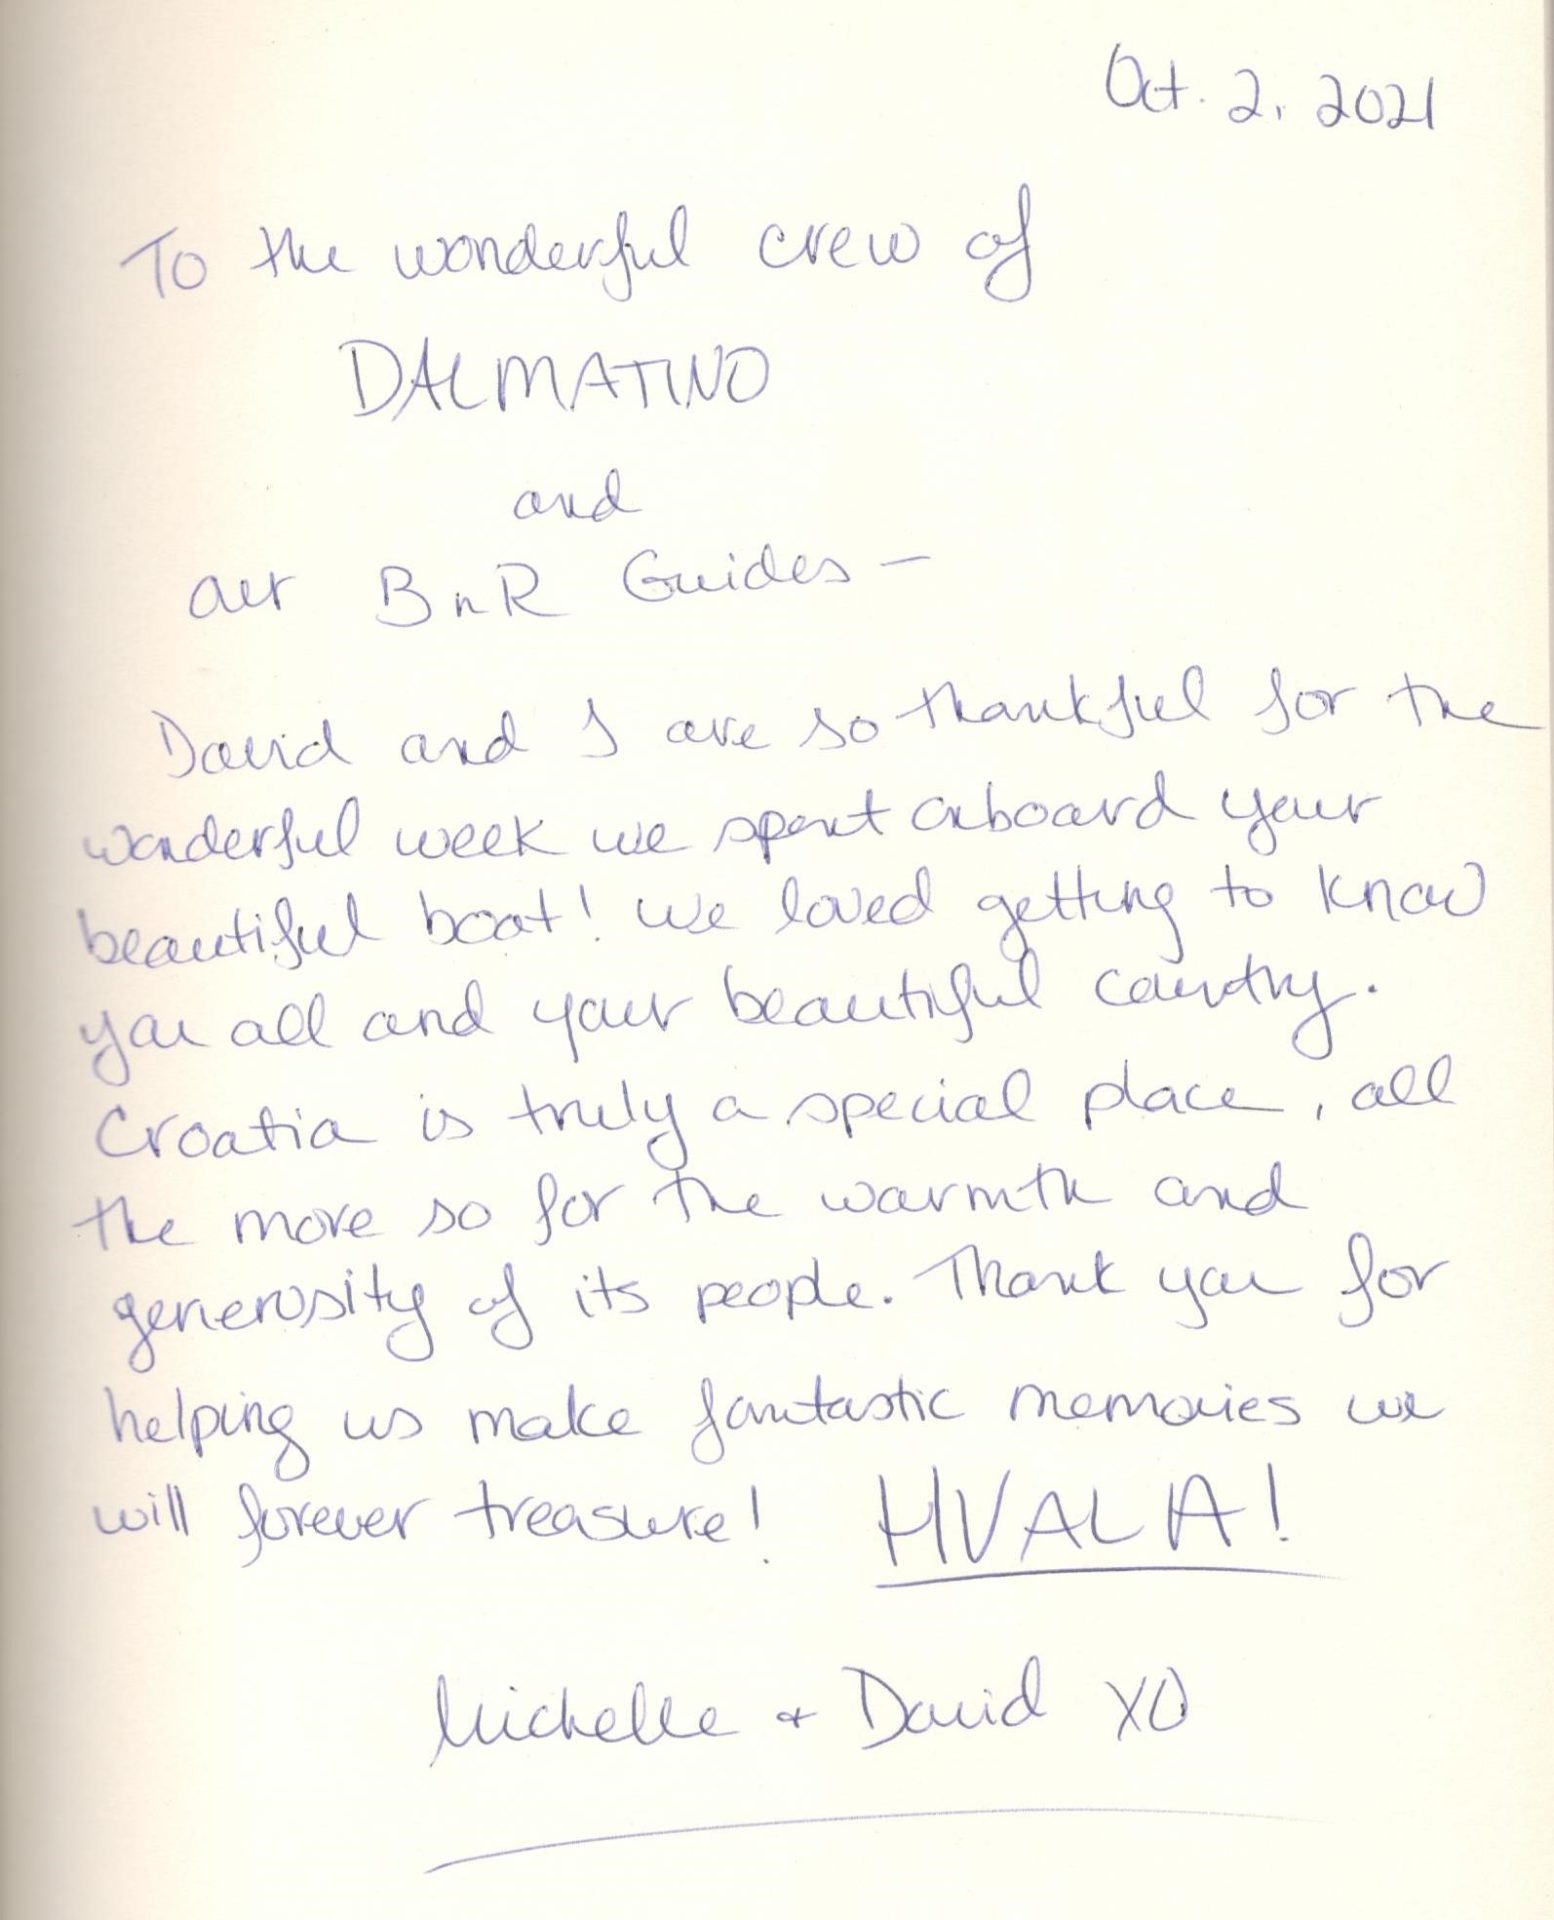 Oct. 2, 2021
To the wonderful crew of
DALMATINO
and
our BnR Guides —
David and I are so thankful for the
wonderful week we spent aboard your
beautiful boat! We loved getting to know
you all and your beautiful country.
Croatia is truly a special place, all
the more so for the warmth and
generosity of its people. Thank you for
helping us make fantastic memories we
will forever treasure! HVALA!
Michelle + David XO